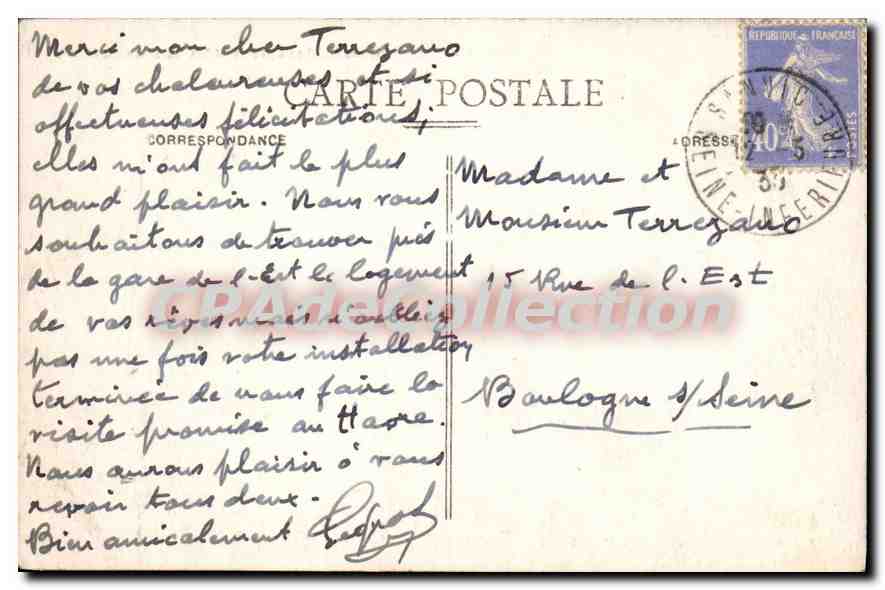 Merci mon cher Terrezano
de vos chaleureuses et si
affectueuses félicitations,
elles m'ont fait le plus
grand plaisir. Nous vous
souhaitons de trouver près
de la gare de l'Est le logement
de vos rêves mais n'oubliez
pas une fois votre installation
terminée de nous faire la
visite promise au Havre.
Nous aurons plaisir à vous
revoir tous deux.
Bien amicalement
CARTE POSTALE
CORRESPONDANCE
ADRESSE
Madame et
Monsieur Terrezano
15 Rue de l'Est
Boulogne s/ Seine
REPUBLIQUE FRANÇAISE
40
POSTES
SANVIC
SEINE-INFERIEURE
12 - 5
CPAdeCollection